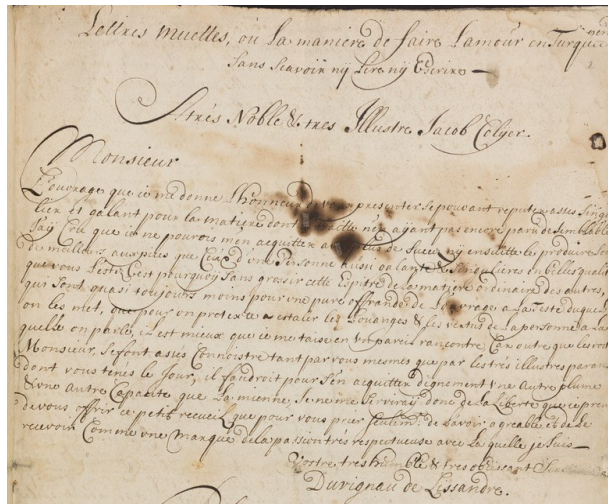 Lettres muettes, ou la maniere de faire l'amour en Turquie
sans scavoir ny lire ny Escrire —
A trés Noble & tres Illustre Jacob Colyer.
Monsieur
L'ouvrage que ie me donne l'honneur de vous presenter se pouvant reputer asses singu
lier et galant pour la matiere dont il traitte n'en ajant pas encore paru de semblable
J'ay Cru que ie ne pourois m'en acquitter avec plus de succes ny en suitte le produire
de meilleurs auspices que ceux d'une Personne aussi galante & singuliere en belles qualit
que vous l'estes, C'est pourquoy sans grossir cette Espitre de la matiere ordinaire des autres,
qui sont quasi toujours moins pour une pure offrande de l'ouvrage a la teste duquel
on les met, que pour un pretexte a estaler les Louanges & les vertus de la personne a la
quelle on parle, il est mieux que ie me taise en un pareil rencontre Car outre que les vostr
Monsieur, se font asses Connoistre tant par vous mesmes que par les tres illustres parans
dont vous tenes le Jour, il faudroit pour s'en acquitter dignement une autre plume
& une autre Capacite que la mienne, Je ne me serviray donc de la Liberte que ie pren
de vous offrir ce petit recueil, que pour vous prier seulemt. de l'avoir agreable et de le
recevoir Comme une Marque de la passion tres respectueuse avec la quelle je suis —
Vostre tres humble & tres obeissant Ser
Duvignau de Lissandre.